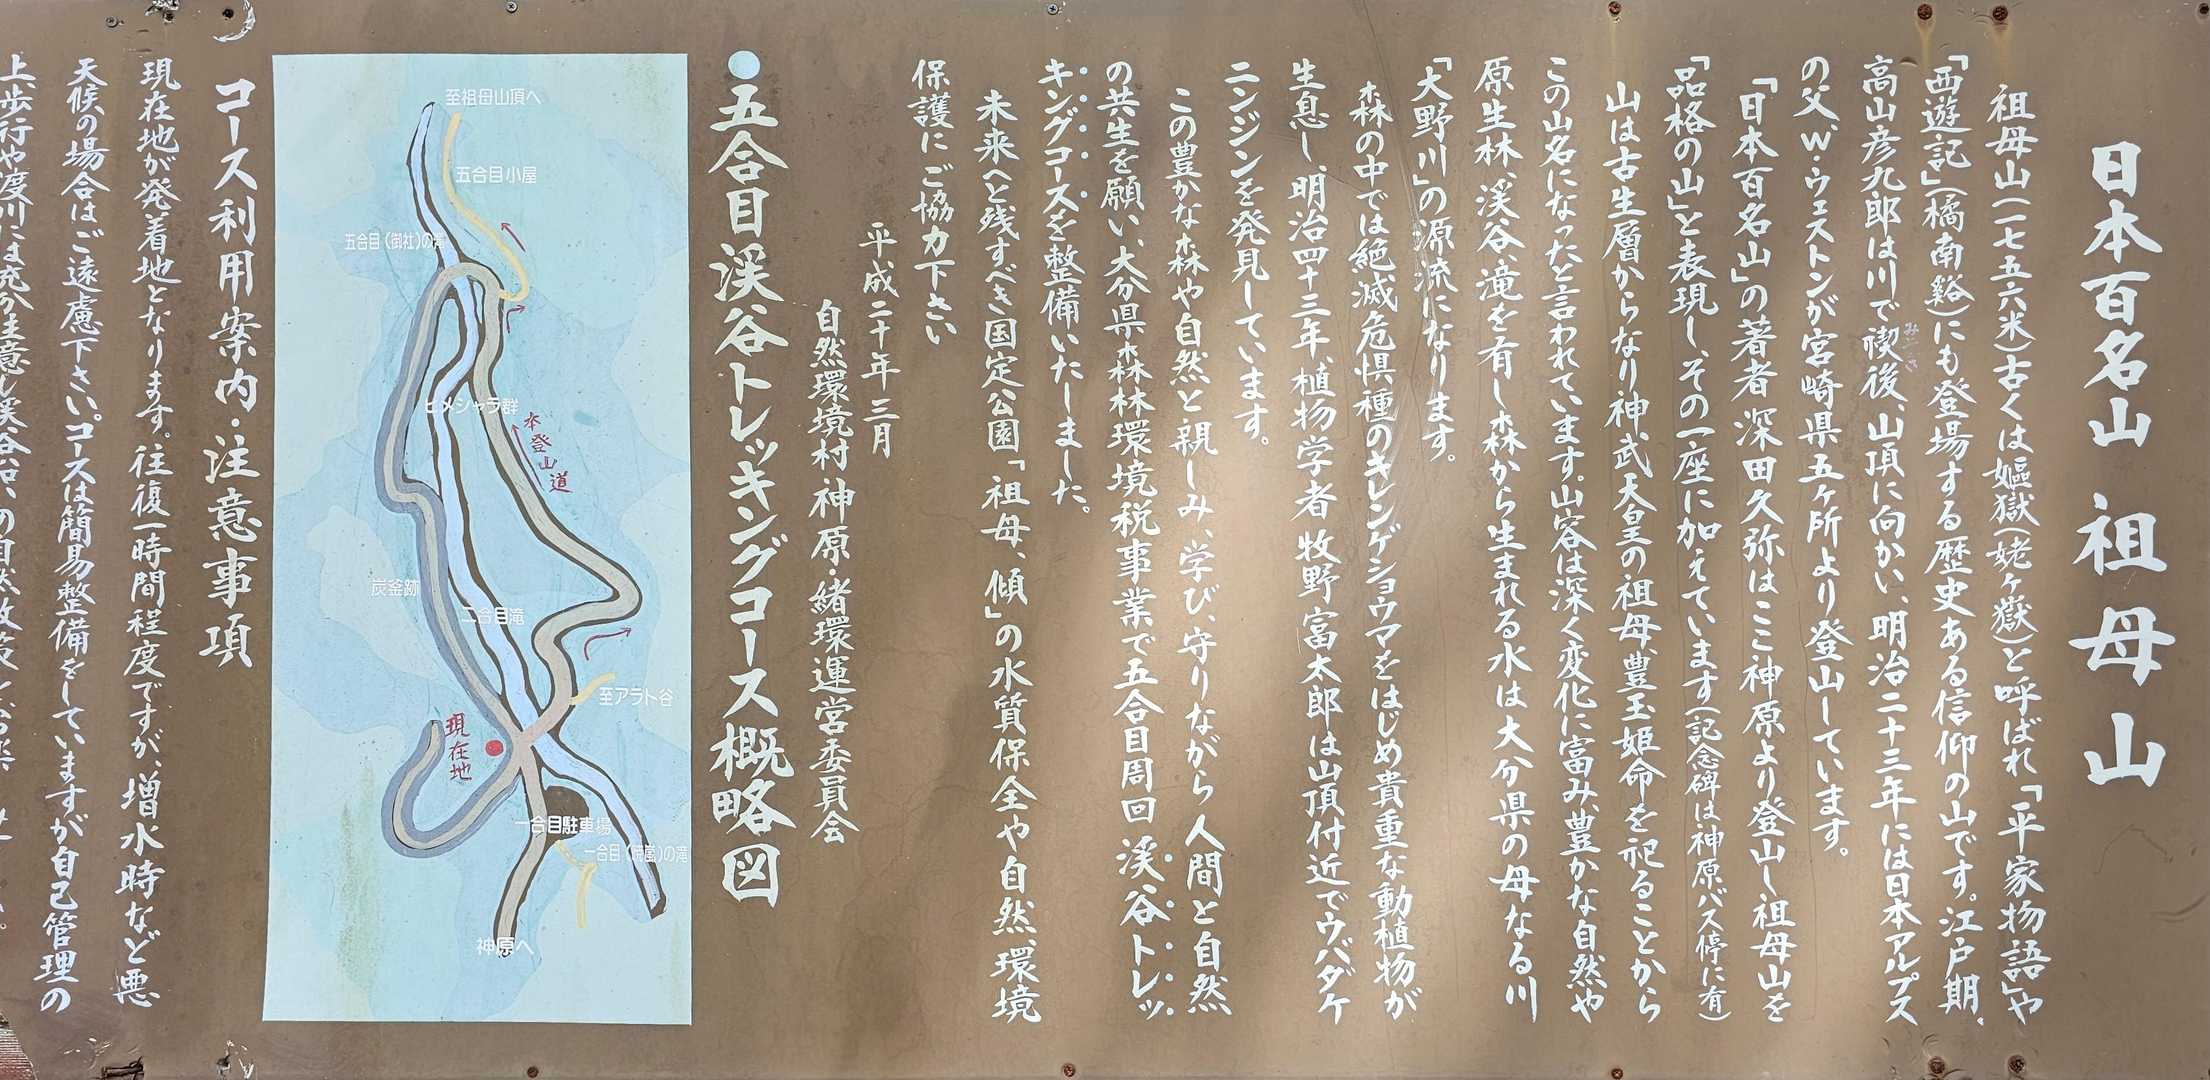 日本百名山 祖母山
祖母山(一七五六米)古くは嫗獄(姥ヶ嶽)と呼ばれ「平家物語」や
「西遊記」(橘南谿)にも登場する歴史ある信仰の山です。江戸期、
高山彦九郎は川で禊後、山頂に向かい、明治二十三年には日本アルプス
みそぎ
の父、W・ウェストンが宮崎県五ヶ所より登山しています。
「日本百名山」の著者深田久弥はここ神原より登山し祖母山を
「品格の山」と表現し、その一座に加えています(記念碑は神原バス停に有)
山は古生層からなり神武天皇の祖母、豊玉姫命を祀ることから
この山名になったと言われています。山容は深く変化に富み、豊かな自然や
原生林、渓谷、滝を有し森から生まれる水は大分県の母なる川
「大野川」の源流になります。
森の中では絶滅危惧種のキレンゲショウマをはじめ貴重な動植物が
生息し、明治四十三年、植物学者牧野富太郎は山頂付近でウバダケ
ニンジンを発見しています。
この豊かな森や自然と親しみ、学び、守りながら人間と自然
の共生を願い、大分県森林環境税事業で五合目周回渓谷トレッ
キングコースを整備いたしました。
未来へと残すべき国定公園「祖母、傾」の水質保全や自然、環境
保護にご協力下さい
平成二十年三月
自然環境村 神原・緒環運営委員会
●五合目渓谷トレッキングコース概略図
至祖母山頂へ
五合目小屋
五合目(御社)の滝
ヒメシャラ群
本登山道
炭釜跡
二合目滝
至アラト谷
現在地
一合目駐車場
一合目 の滝
神原へ
コース利用案内・注意事項
現在地が発着地となります。往復一時間程度ですが、増水時など悪
天候の場合はご遠慮下さい。コースは簡易整備をしていますが自己管理の
上歩行や渡川には充分注意し渓谷沿いの自然散策を